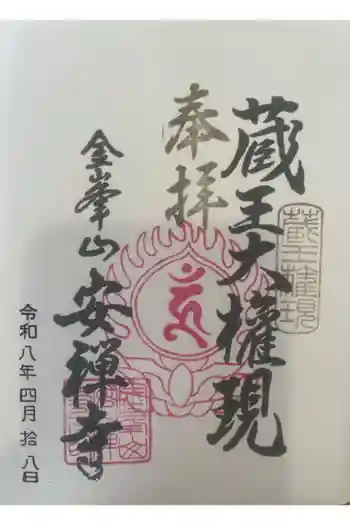 奉拝
蔵王大権現
蔵王権現
金峯山
安禅寺
令和八年四月拾八日